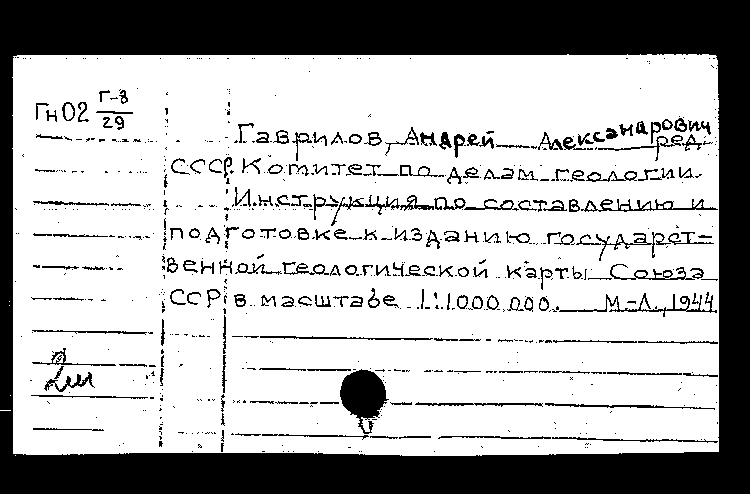 Гн02 Г-8
29
Гаврилов, Андрей Александрович
ред.
СССР. Комитет по делам геологии.
Инструкция по составлению и
подготовке к изданию государст=
венной геологической карты Союза
ССР в масштабе 1:1000 000. М.-Л., 1944